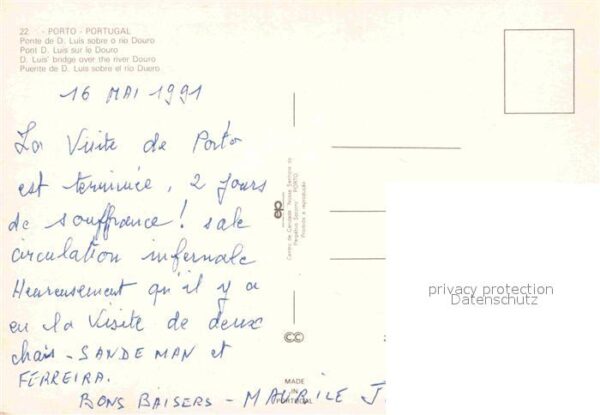 22 - PORTO - PORTUGAL
Ponte de D. Luis sobre o rio Douro
Pont D. Luis sur le Douro
D. Luis' bridge over the river Douro
Puente de D. Luis sobre el río Duero
16 MAI 1991
La Visite de Porto
est terminée, 2 jours
de souffrance! sale
circulation infernale
Heureusement qu'il y a
eu la visite de deux
chais - SANDEMAN et
FERREIRA.
BONS BAISERS - MAURICE J.
cp
Centro de Caridade "Nossa Senhora do
Perpétuo Socorro" PORTO
Proibida a reprodução
MADE
IN
PORTUGAL
privacy protection
Datenschutz